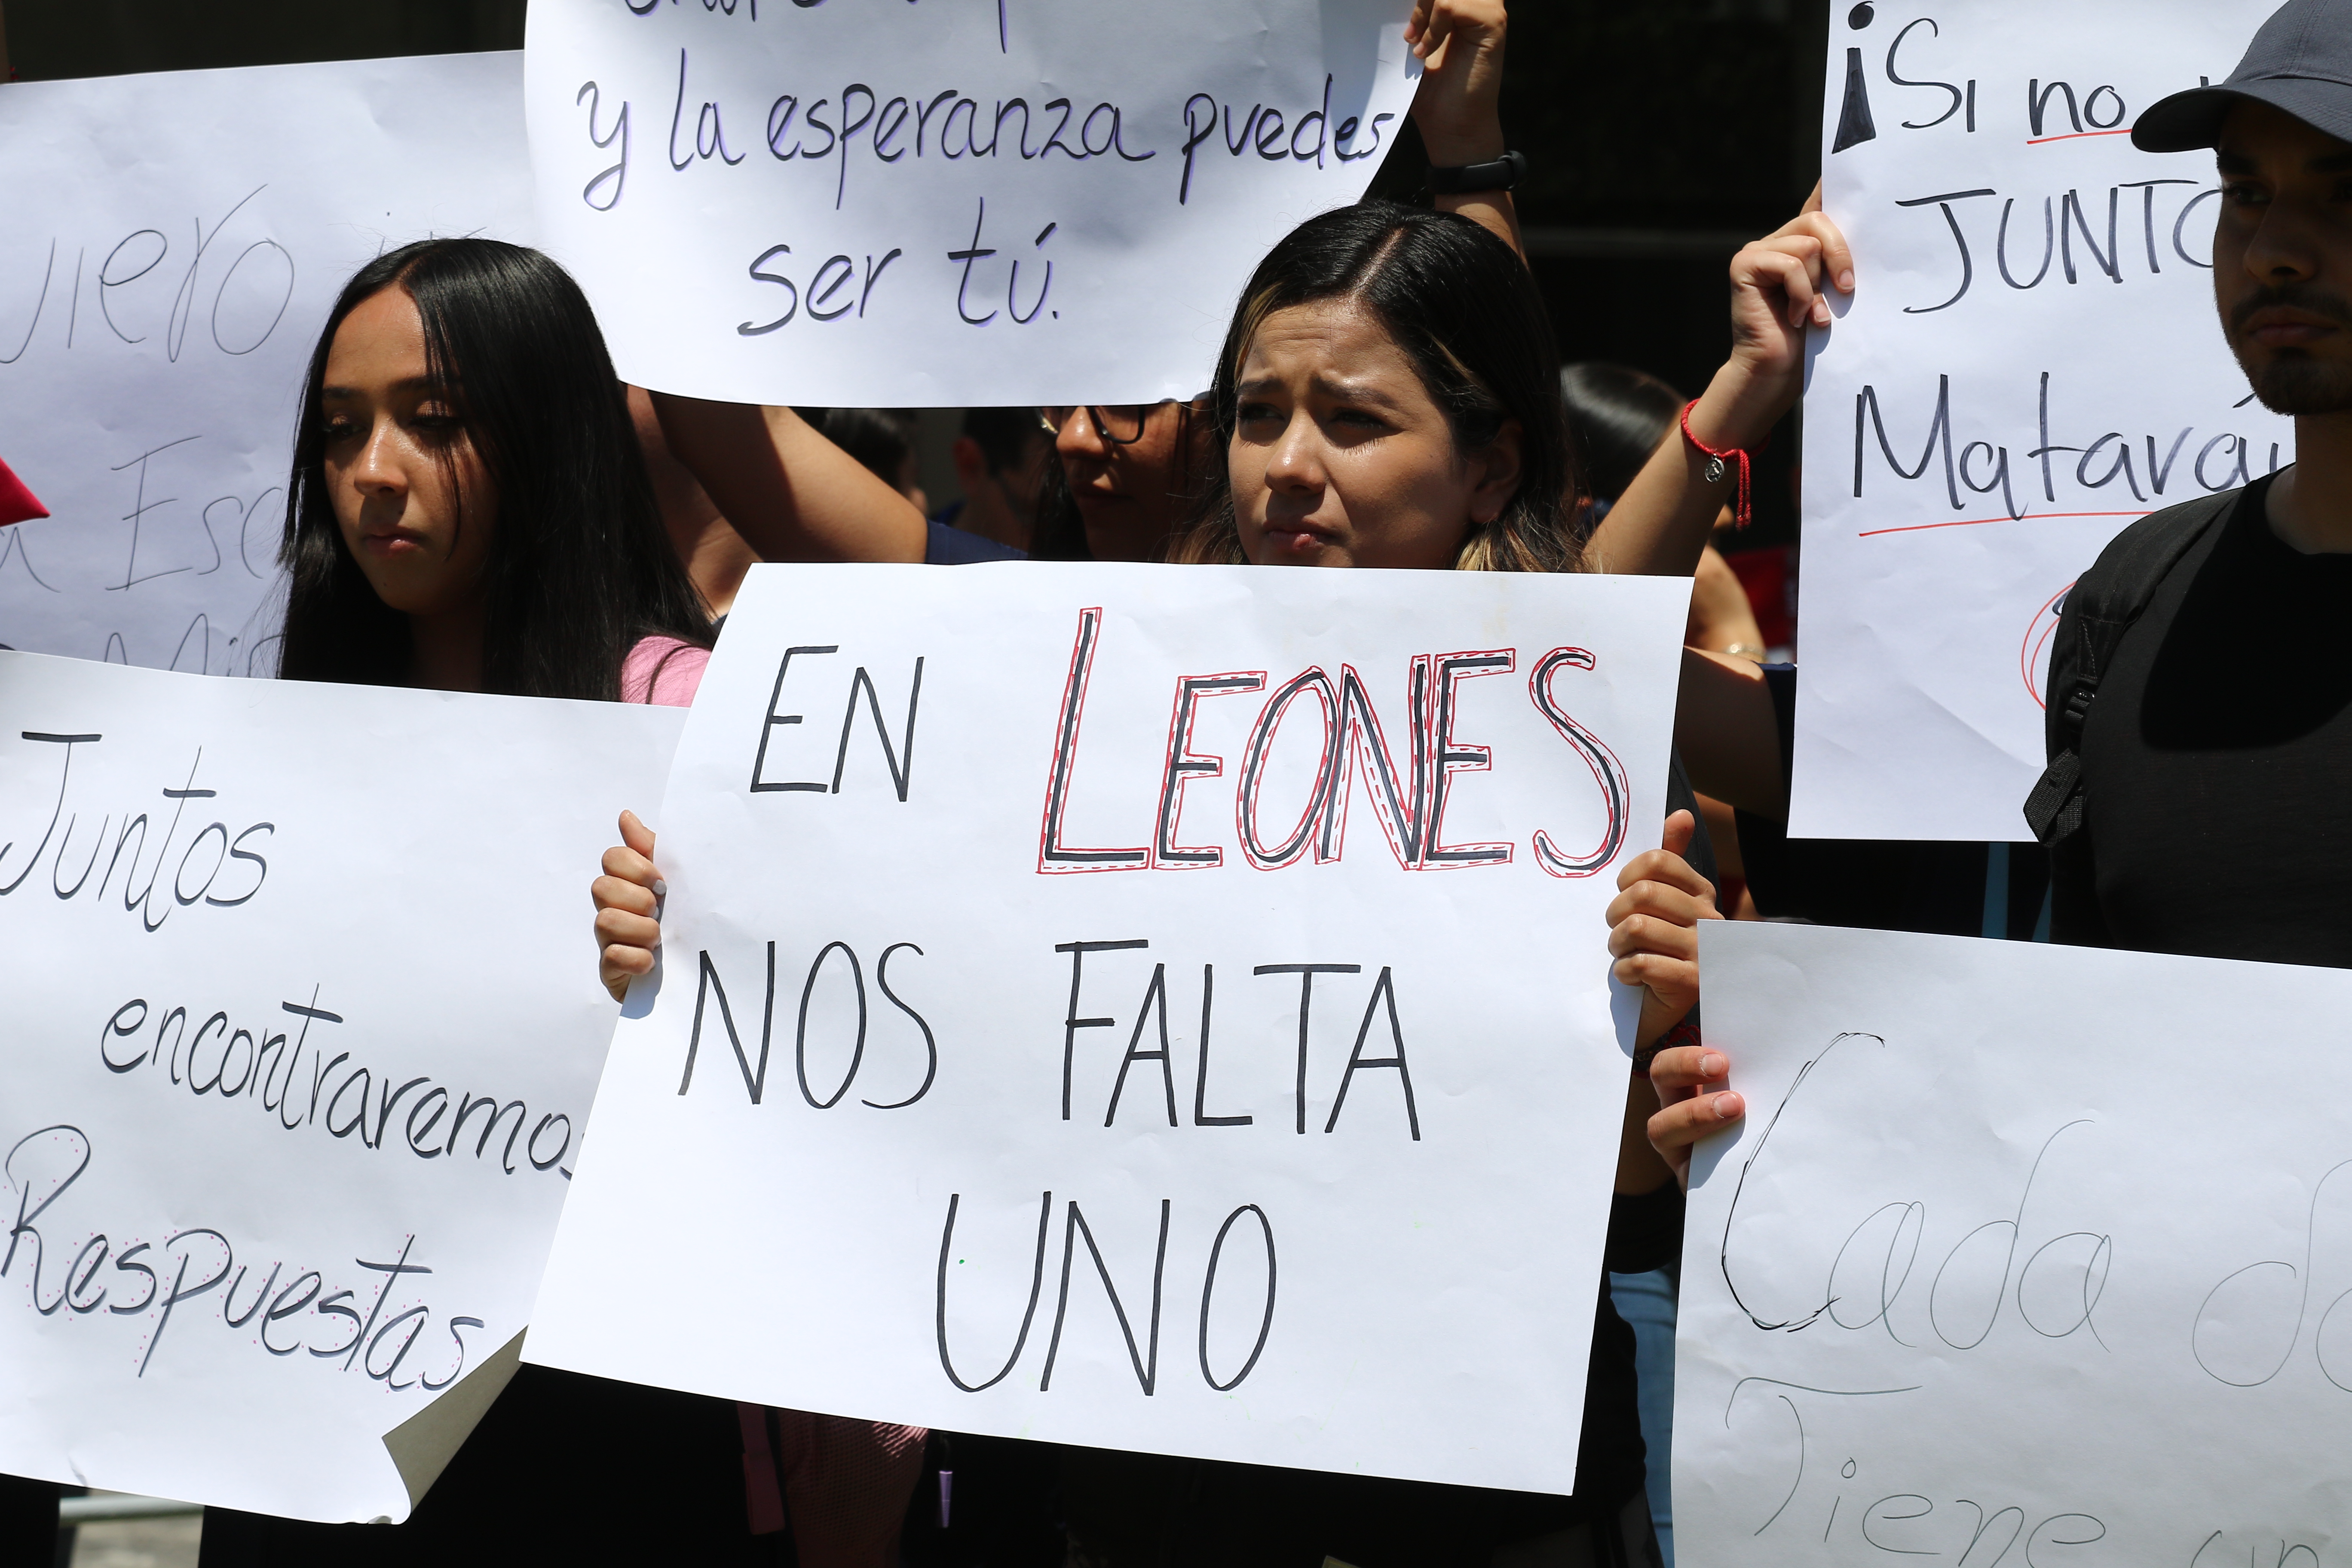 y la esperanza puedes
ser tú.
¡Si no
JUNTO
Matará
Juntos
encontraremos
Respuestas
EN LEONES
NOS FALTA
UNO
Cada
Tiene un